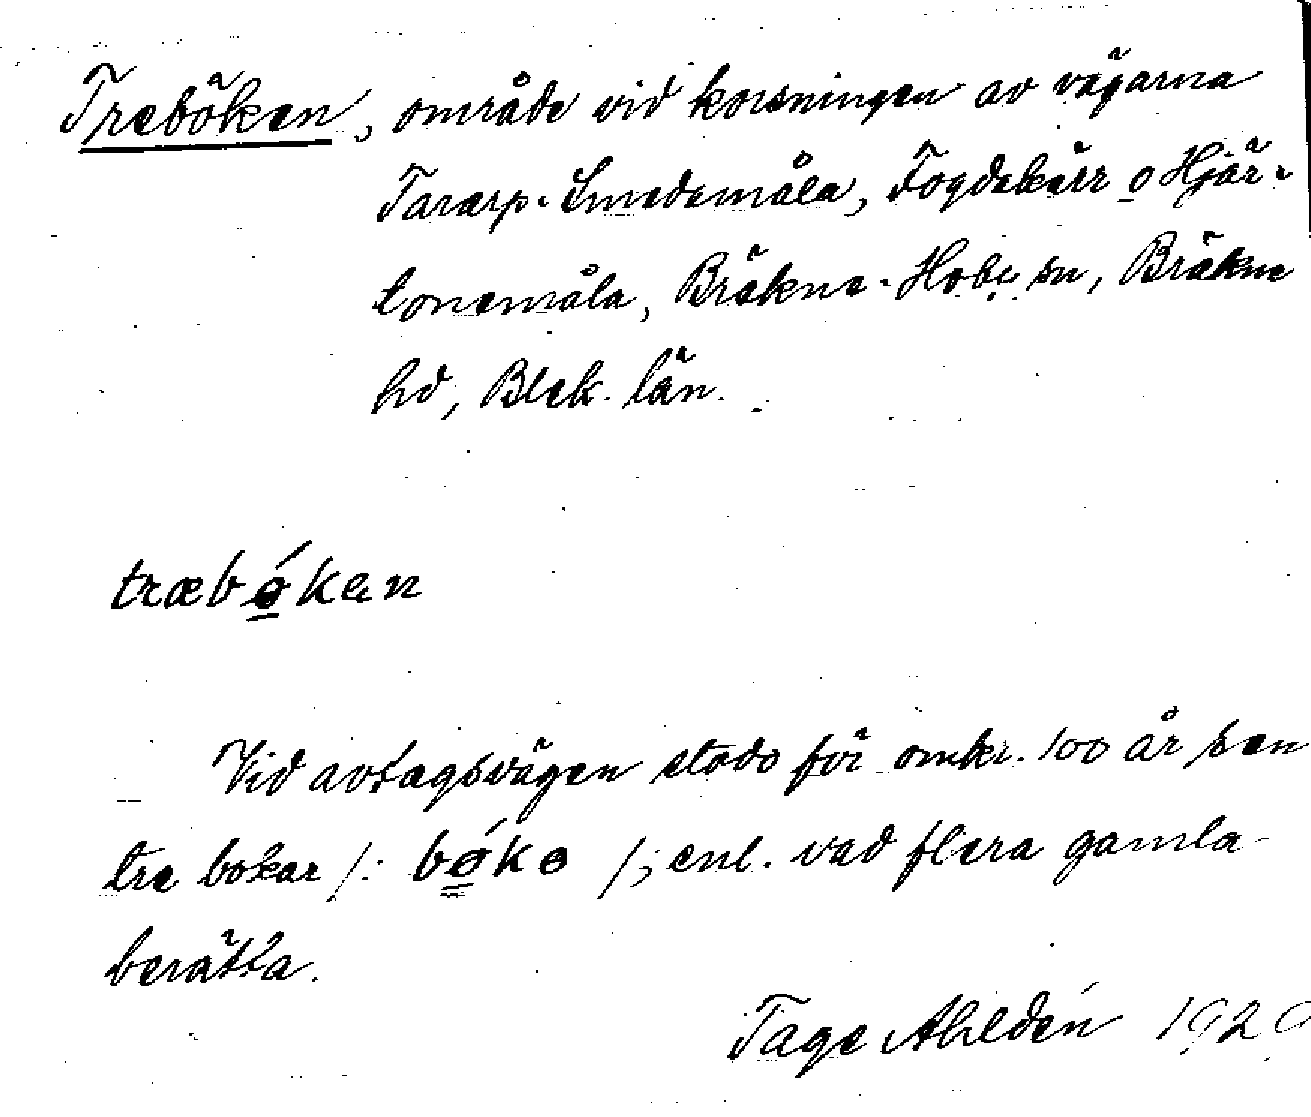 Treböken, område vid korsningen av vägarna
Tararp-Smedemåla, Fogdekärr o Hjär-
tonemåla, Bräkne-Hoby sn, Bräkne
hd, Blek. län.
træbǿken
Vid avtagsvägen stodo för omkr. 100 år sen
tre bokar /: bǿkə /; enl. vad flera gamla
berätta.
Tage Ahldén 1929